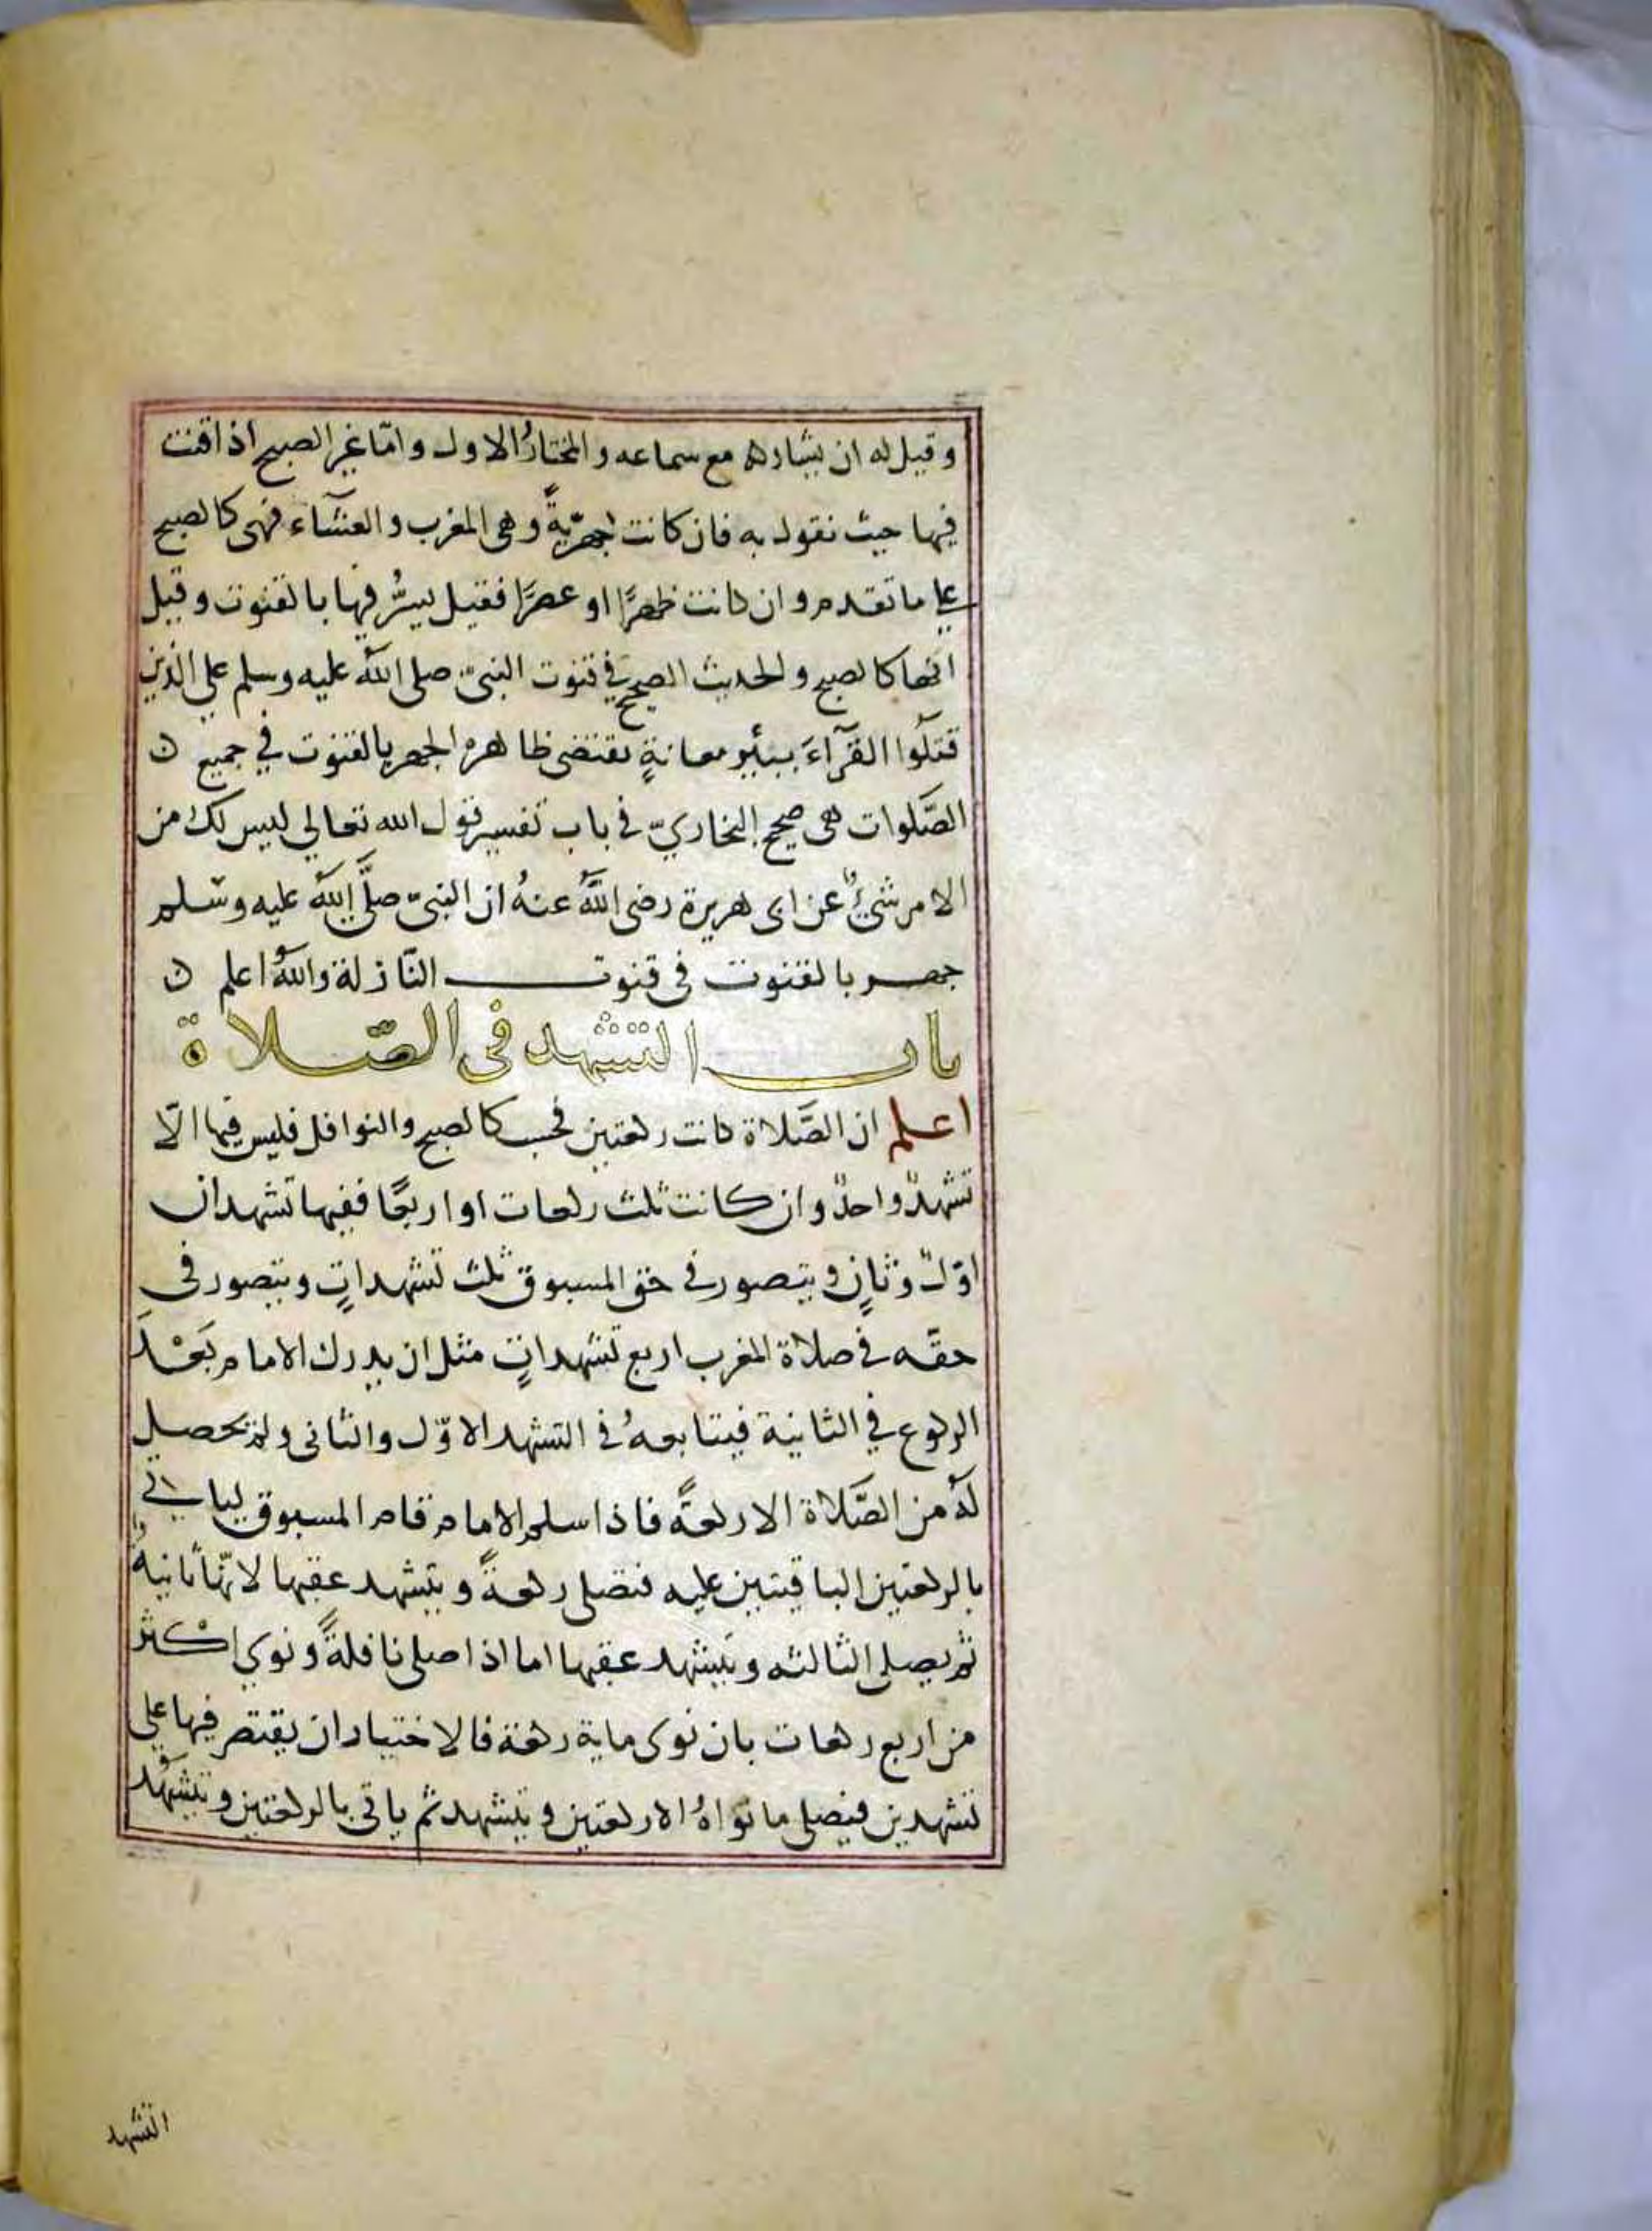 وقيل له ان يشاركه مع سماعه والمختارُ الاول وامّا غير الصبح اذا قنت
فيها حيث نقول به فان كانت جهرّيةً وهى المغرب والعشآء فهى كالصبح
على ما تقدم وان كانت ظهرًا او عصرًا فقيل يسرُّ فيها بالقنوت وقيل
انها كالصبح والحديث الصحيح في قنوت النبىّ صلى اللّٰه عليه وسلم على الذين
قتلوا القرآءَ ببئير معانةٍ يقتضى ظاهره الجهر بالقنوت في جميع ن
الصَّلوات هى صحيح البخاريّ في باب تفسير قول الله تعالي ليس لك من
الامر شيءٌ عن ابى هريرة رضى اللّٰه عنهُ ان النبىّ صلَّى اللّٰه عليه وسّلم
جهر بالقنوت فى قنوت النّازلة واللّٰهُ اعلم ن
باب التشهد فى الصّلاة
اعلم ان الصَّلاة كانت ركعتين فحسب كالصبح والنوافل فليس فيها الّا
تشهدٌ واحدٌ وان كانت ثلث ركعات او اربعًا ففيها تشهدان
اوّلٌ وثانٍ ويتصور في حق المسبوق ثلث تشهداتٍ ويتصور فى
حقّه في صلاة المغرب اربع تشهداتٍ مثل ان يدرك الامام بَعْدَ
الركوع في الثانية فيتابعهُ في التشهد الاوّل والثانى ولم يحصل
لهُ من الصَّلاة الا ركعةً فاذا سلم الامام قام المسبوق لياتي
بالركعتين الباقيتين عليه فتصلى ركعةً ويتشهد عقبها لانّها ثانيةٌ
ثم يصلى الثالثه ويتَشهد عقبها اما اذا صلى نافلةً ونوي اكثر
من اربع ركعات بان نوى ماية ركعة فالاختيار ان يقتصر فيها على
تشهدين فيصلى ما نواهُ الا ركعتين ويتشهد ثم ياتى بالركعتين ويتشهُد
التشهد